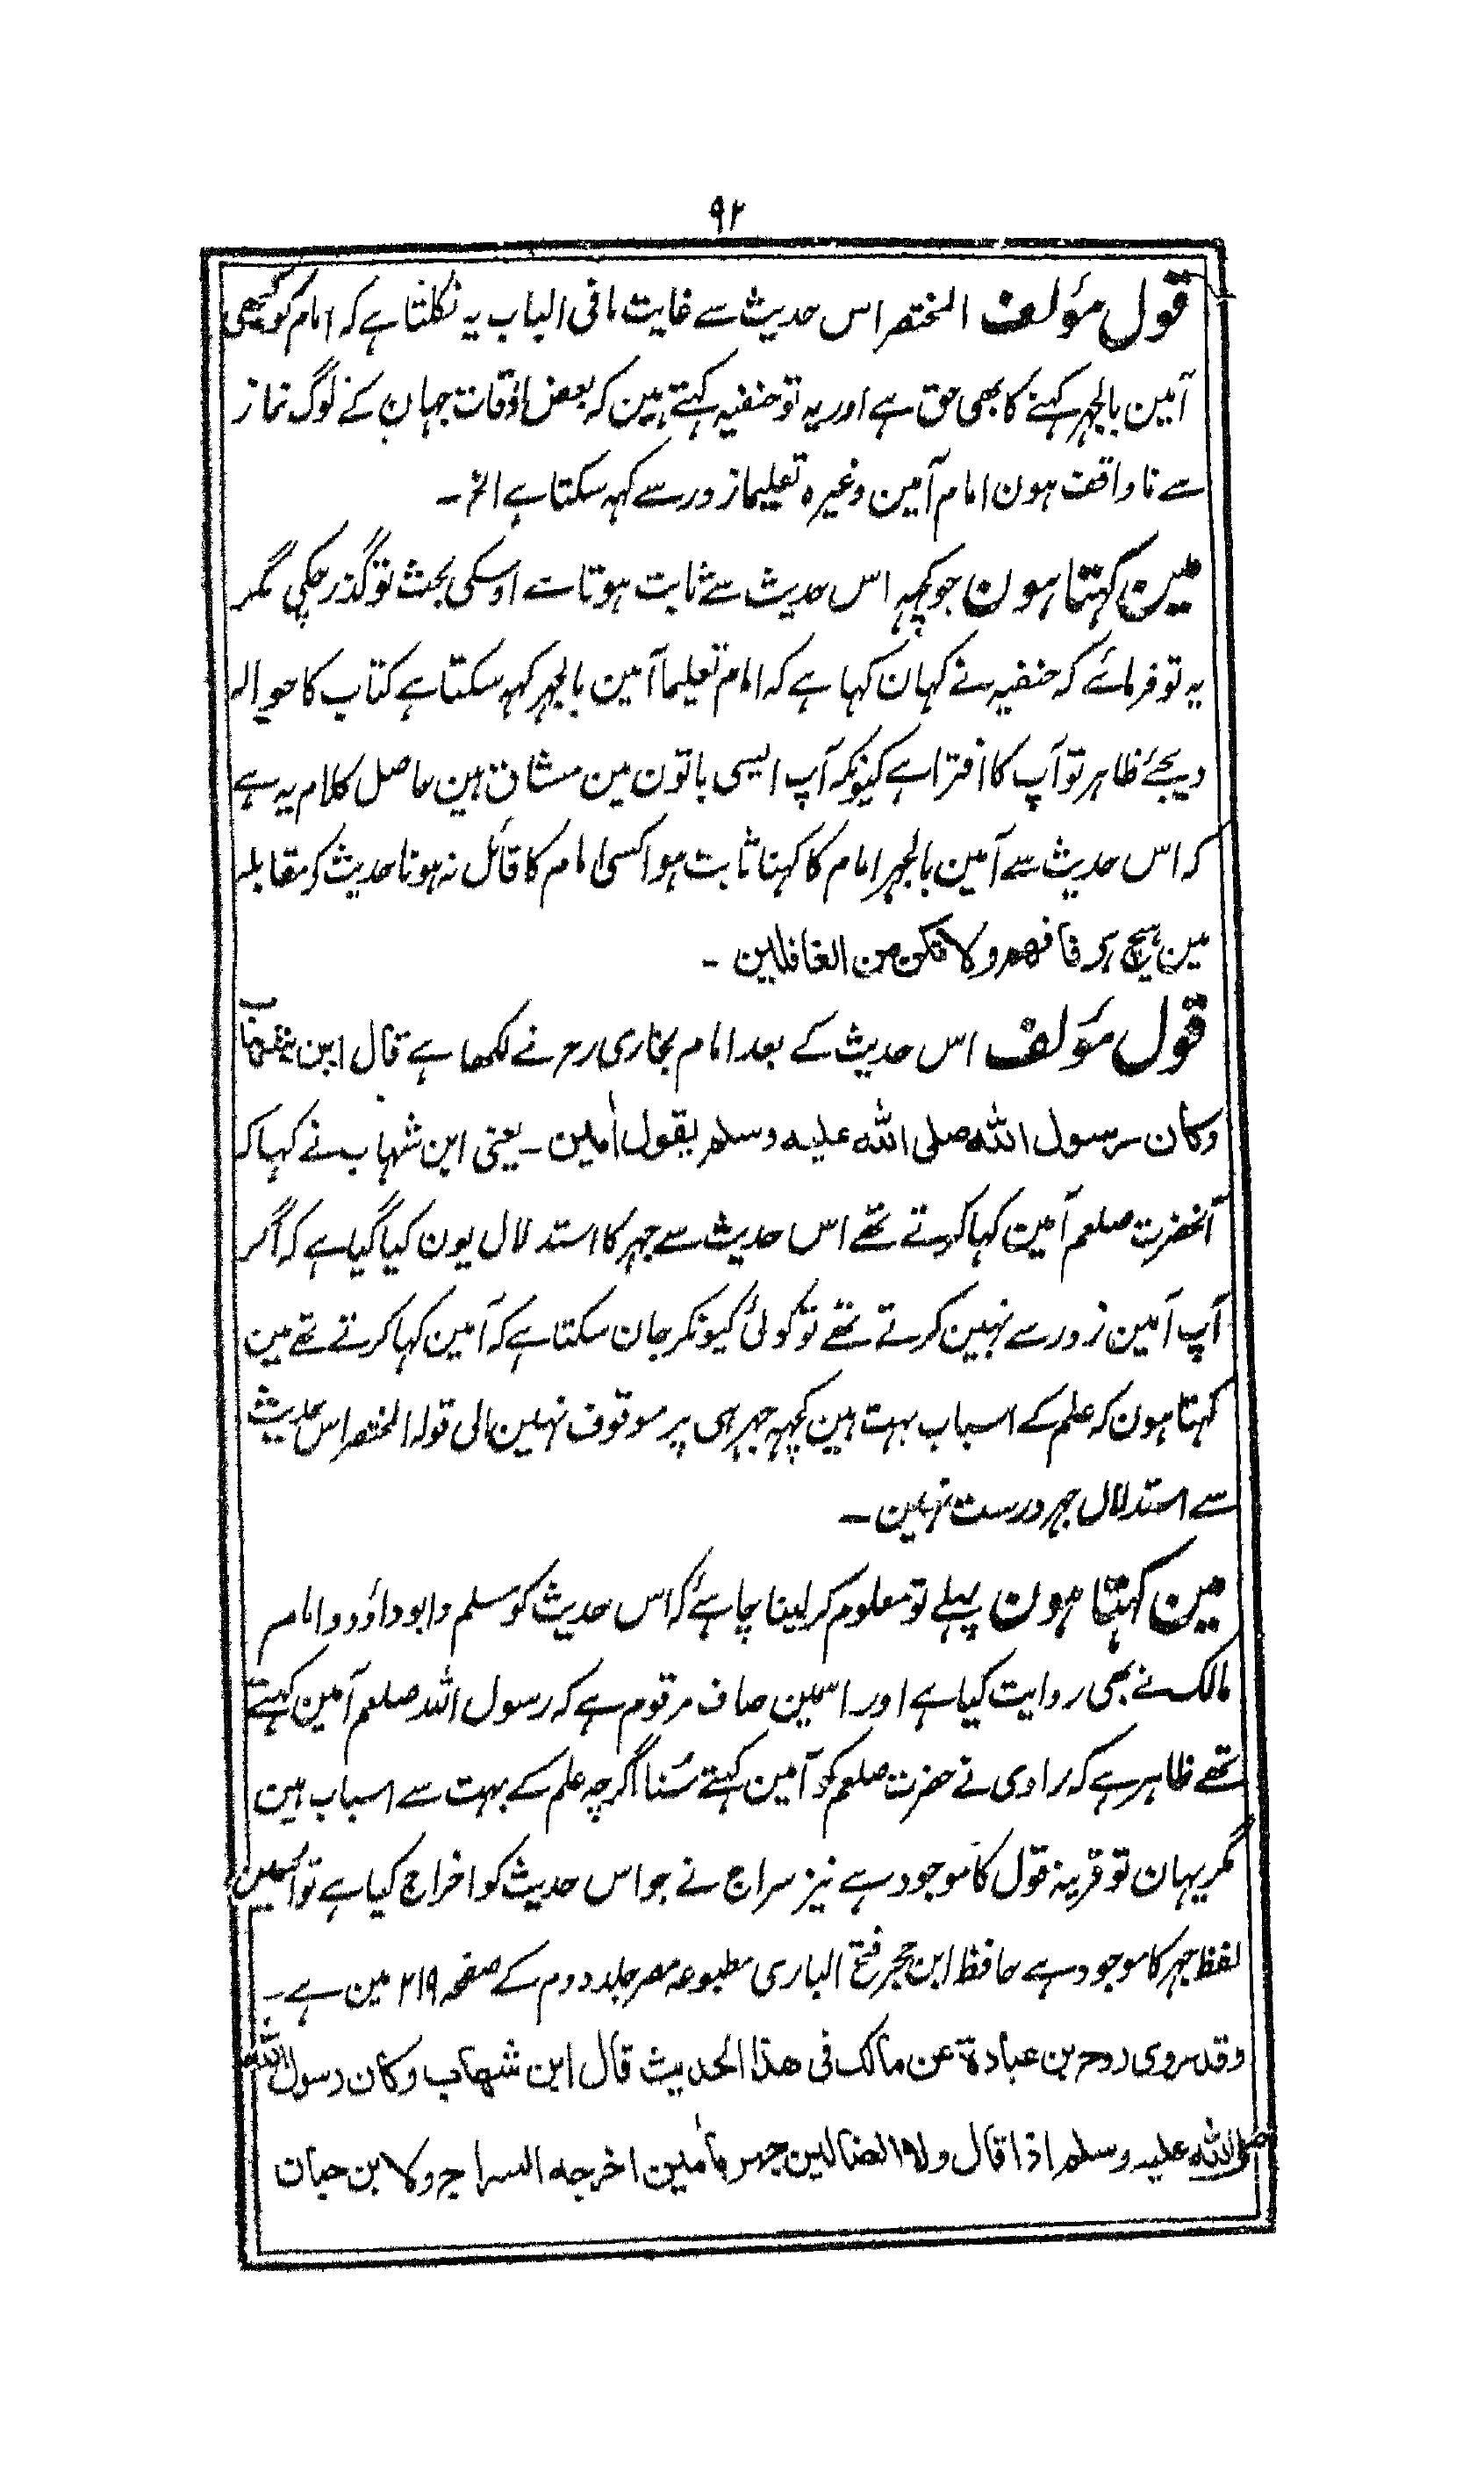 ۹۲
قول مؤلف المختصر اس حدیث سے غایت مافی الباب یہ نکلتا ہے کہ امام کو بھی
آمین بالجہر کہنے کا بھی حق ہے اور یہ تو حنفیہ کہتے ہین کہ بعض اوقات جہان کے لوگ نماز
سے ناواقف ہون امام آمین وغیرہ تعلیما زور سے کہہ سکتا ہے الخ ۔
مین کہتا ہون جو کچہہ اس حدیث سے ثابت ہوتا ہے اوسکی بحث تو گذر چکی مگر
یہ تو فرمائے کہ حنفیہ نے کہان کہا ہے کہ امام تعلیما آمین بالجہر کہہ سکتا ہے کتاب کا حوالہ
دیجئے ظاہر تو آپ کا افترا ہے کیونکہ آپ ایسی باتون مین مشاق ہین حاصل کلام یہ ہے
کہ اس حدیث سے آمین بالجہر امام کا کہنا ثابت ہوا کسی امام کا قائل نہ ہونا حدیث کے مقابلہ
مین ہیچ ہے فافهم ولا تكن من الغافلين ۔
قول مؤلف اس حدیث کے بعد امام بخاری رح نے لکھا ہے قال ابن شهاب
وكان رسول الله صلى الله عليه وسلم يقول أمين ۔ یعنی ابن شہاب نے کہا کہ
آنحضرت صلعم آمین کہا کرتے تھے اس حدیث سے جہر کا استدلال یون کیا گیا ہے کہ اگر
آپ آمین زور سے نہین کرتے تھے تو کوئی کیونکر جان سکتا ہے کہ آمین کہا کرتے تھے مین
کہتا ہون کہ علم کے اسباب بہت ہین کچہہ جہر ہی پر موقوف نہین الی قولہ المختصر اس حدیث
سے استدلال جہر درست نہین ۔
مین کہتا ہون پہلے تو معلوم کر لینا چاہئے کہ اس حدیث کو مسلم و ابو داؤد و امام
مالک نے بھی روایت کیا ہے اور اسمین صاف مرقوم ہے کہ رسول اللہ صلعم آمین کہتے
تھے ظاہر ہے کہ راوی نے حضرت صلعم کو آمین کہتے سُنا اگرچہ علم کے بہت سے اسباب ہین
مگر یہان تو قرینہ قول کا موجود ہے نیز سراج نے جو اس حدیث کو اخراج کیا ہے تو اسمین
لفظ جہر کا موجود ہے حافظ ابن حجر فتح الباری مطبوعہ مصر جلد دوم کے صفحہ ۲۱۹ مین ہے ۔
وقد روى روح بن عبادة عن مالك فى هذا الحديث قال ابن شهاب وكان رسول الله
صلى الله عليه وسلم اذا قال ولا الضالين جهر بأمين اخرجه السراج ولابن حبان